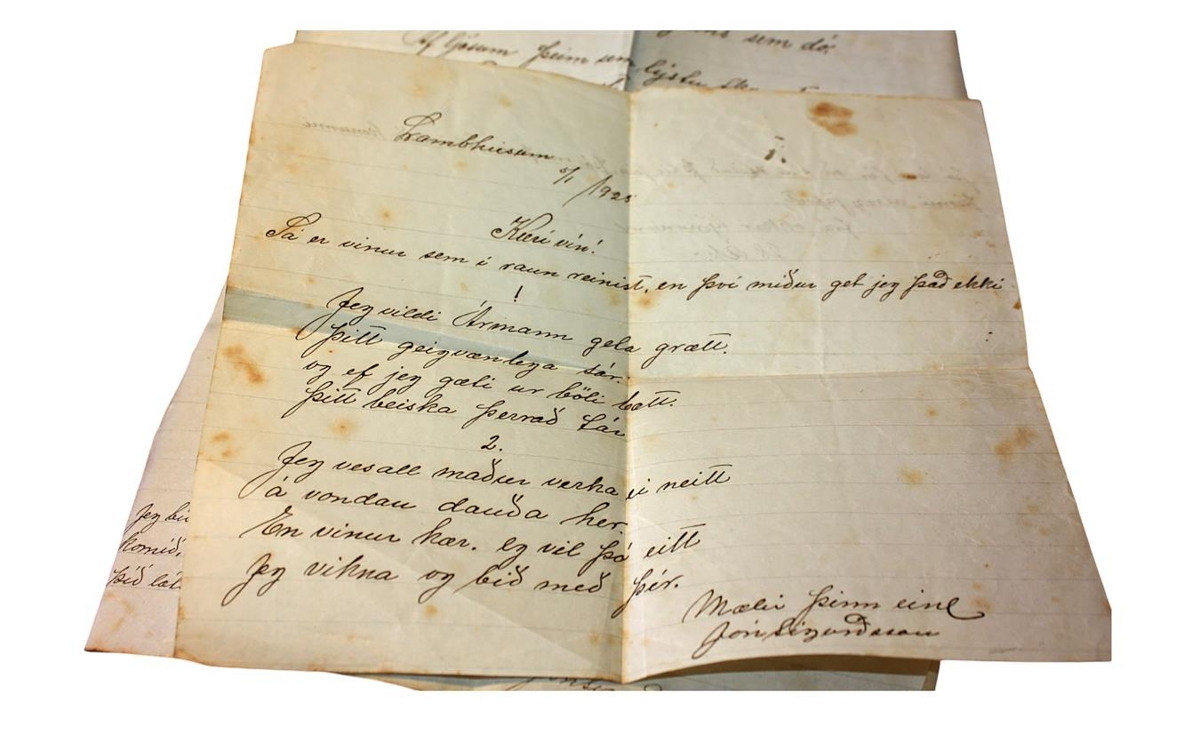 Af ljósum þeim sem lýstu
sem dó.
Lambhúsum
5/1 1925
I.
Kæri vin!
Sá er vinur sem í raun reinist, en því miður get jeg það ekki
!
Jeg vildi Ármann geta grætt.
þitt geigvænlega sár.
og ef jeg gæti úr böli bætt.
þitt beiska þerrað tár
2.
Jeg vesall maður verka ei neitt
á vondan dauða hér.
En vinur kær. eg vil þó eitt
Jeg vikna og bið með þér.
Mælir þinn einl
Jón Sigurðsson
Jeg bi
komið.
þið lát